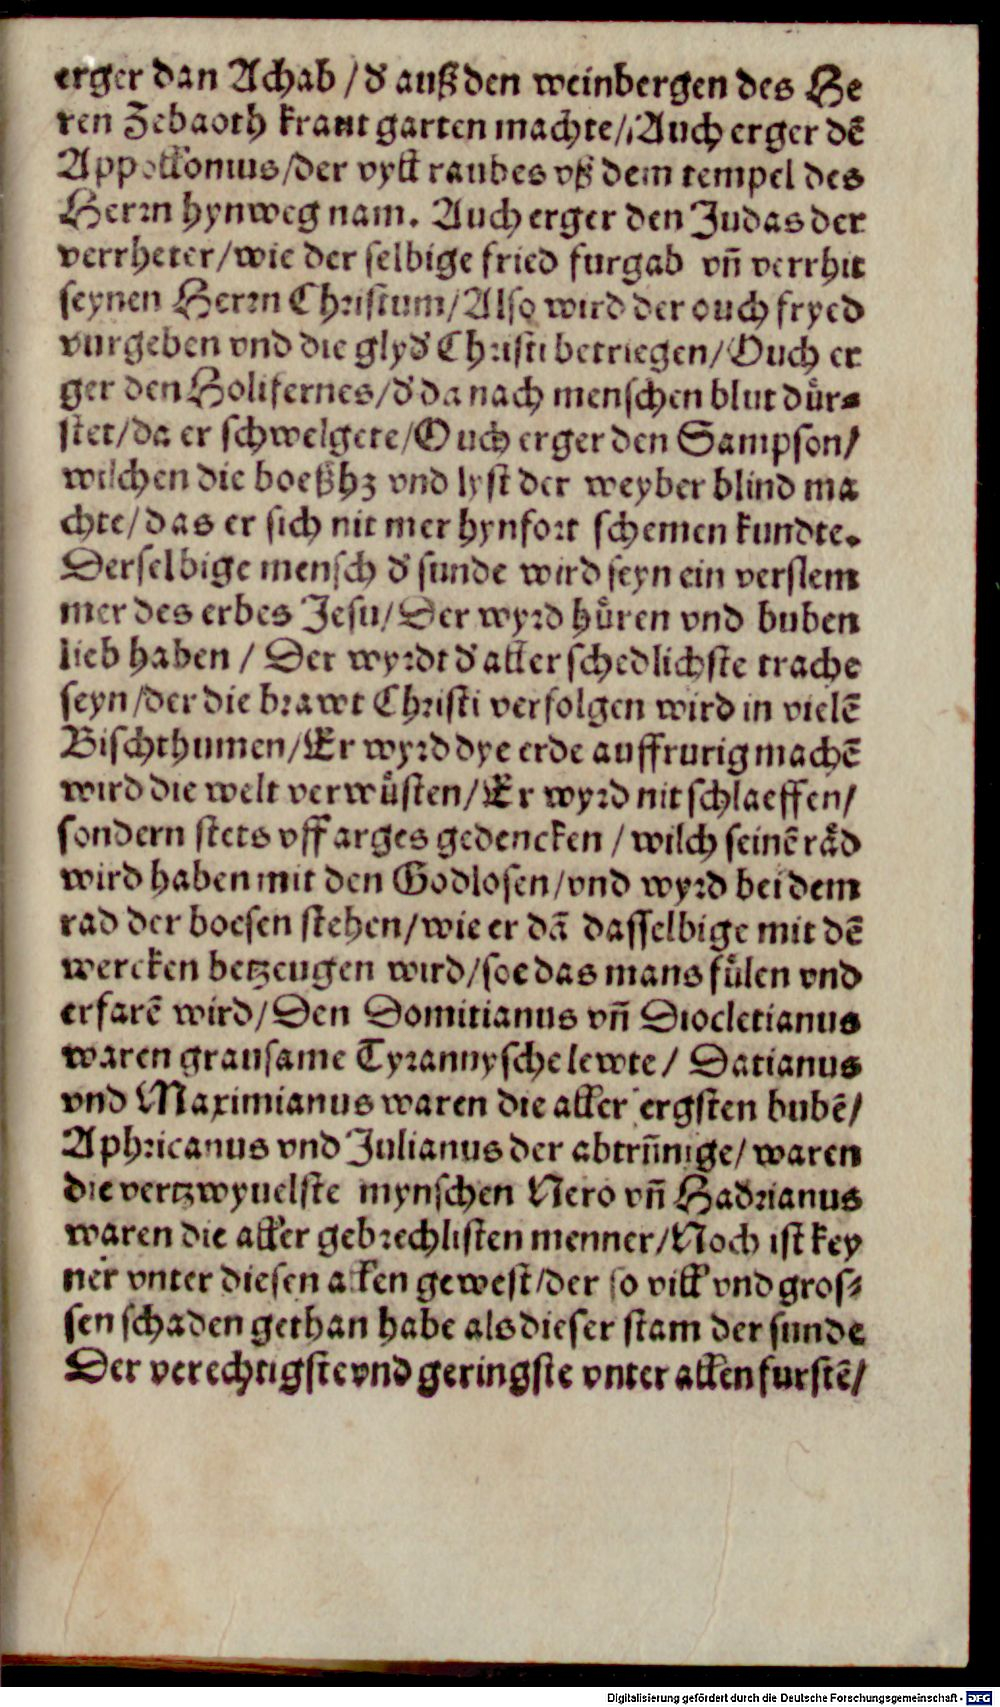 erger dan Achab / d' auß den weinbergen des He
ren Zebaoth kraut garten machte / Auch erger dē
Appollonius / der vyll raubes vß dem tempel des
Herrn hynweg nam. Auch erger den Judas der
verrheter / wie der selbige fried furgab vn̄ verrhit
seynen Herrn Christum / Also wird der ouch fryed
vurgeben vnd die glyd' Christi betriegen / Ouch er
ger den Holifernes / d' da nach menschen blut duͤr⸗
stet / da er schwelgete / Ouch erger den Sampson /
wilchen die boeßhz vnd lyst der weyber blind ma
chte / das er sich nit mer hynfort schemen kundte.
Derselbige mensch d' sunde wird seyn ein verslem
mer des erbes Jesu / Der wyrd huͤren vnd buben
lieb haben / Der wyrdt d' aller schedlichste trache
seyn / der die brawt Christi verfolgen wird in vielē
Bischthumen / Er wyrd dye erde auffrurig machē
wird die welt verwuͤsten / Er wyrd nit schlaeffen /
sondern stets vff arges gedencken / wilch seinē raͤd
wird haben mit den Godlosen / vnd wyrd bei dem
rad der boesen stehen / wie er dā dasselbige mit dē
wercken betzeugen wird / soe das mans fuͤlen vnd
erfarē wird / Den Domitianus vn̄ Diocletianus
waren grausame Tyrannysche lewte / Datianus
vnd Maximianus waren die aller ergsten bubē /
Aphricanus vnd Julianus der abtrun̄nige / waren
die vertzwyuelste mynschen Nero vn̄ Hadrianus
waren die aller gebrechlisten menner / Noch ist key
ner vnter diesen allen gewest / der so vill vnd gros⸗
sen schaden gethan habe als dieser stam der sunde
Der verechtigste vnd geringste vnter allen furstē /
Digitalisierung gefördert durch die Deutsche Forschungsgemeinschaft - DFG